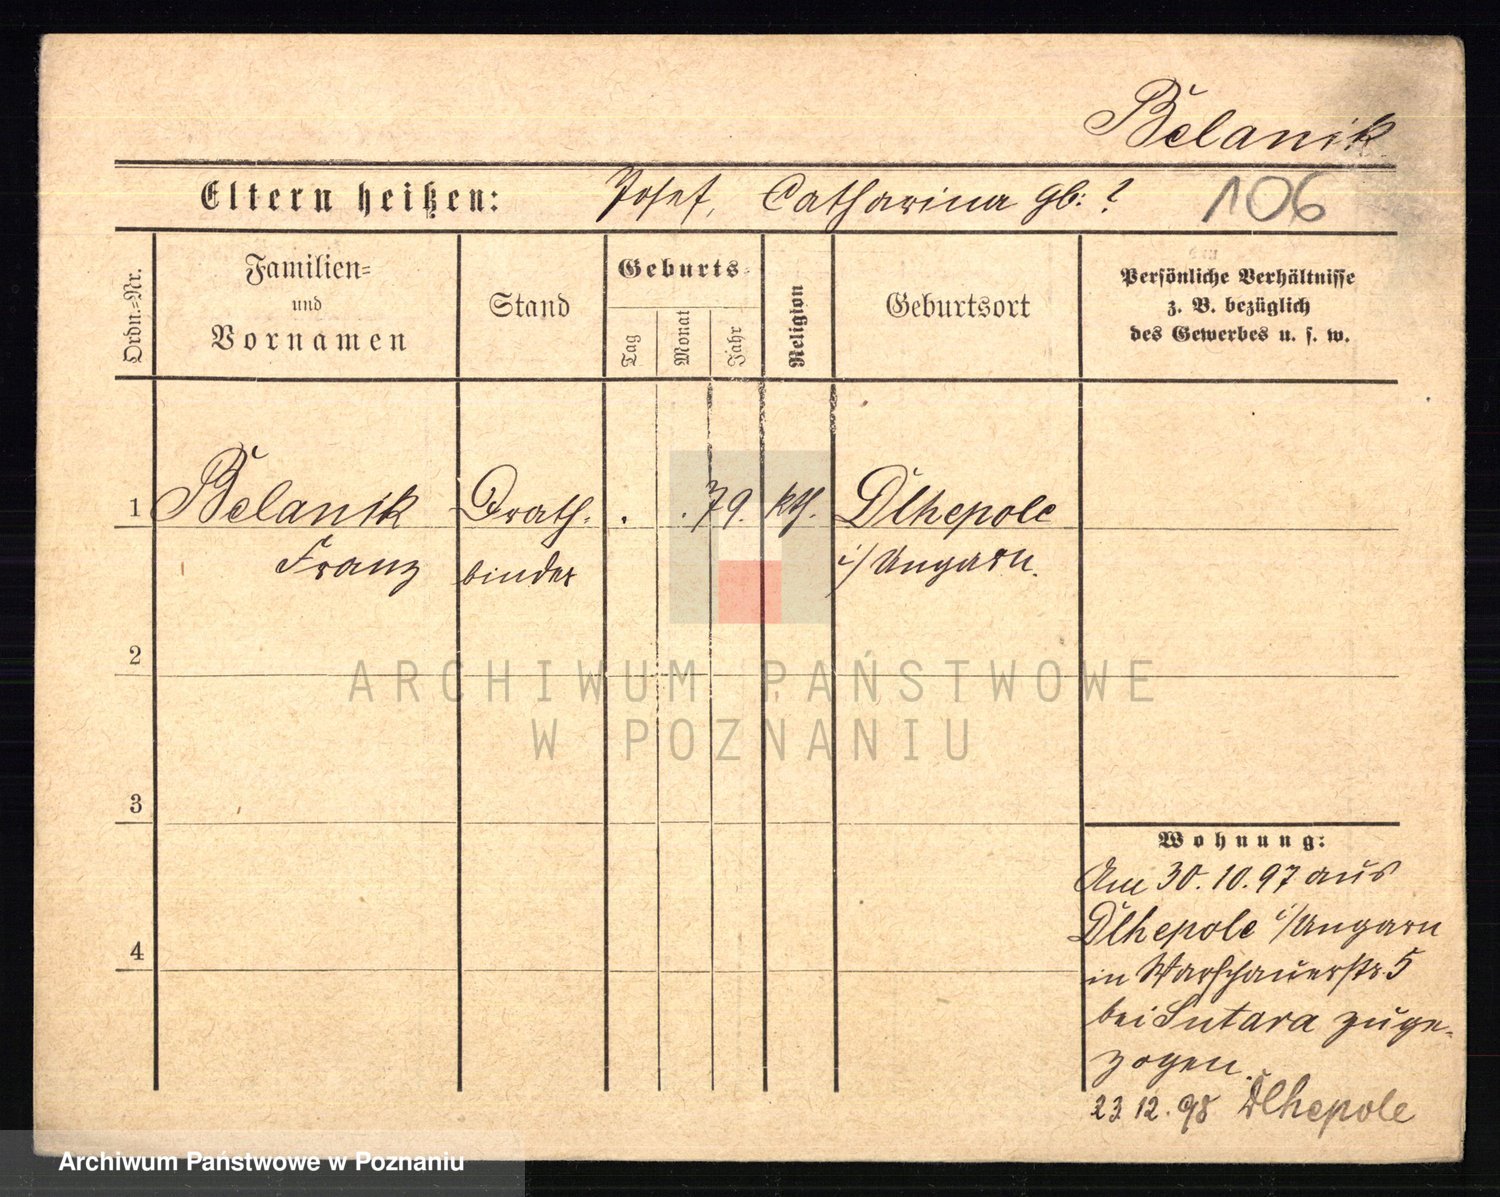 Bĕlanik
Eltern heißen: Josef, Catharina gb: ? 106
Ordn.-Nr.
Familien-
und
Vornamen
Stand
Geburts-
Tag
Monat
Jahr
Religion
Geburtsort
Persönliche Verhältnisse
z. B. bezüglich
des Gewerbes u. s. w.
1 Bĕlanik Drath- . . 79. kth. Dlhepole
Franz binder i/Ungarn.
2
ARCHIWUM PAŃSTWOWE
W POZNANIU
3
Wohnung:
Am 30.10.97 aus
Dlhepole i/Ungarn
4
in Warschauerstr 5
bei Sutara zuge-
zogen.
23 12. 98 Dlhepole
Archiwum Państwowe w Poznaniu